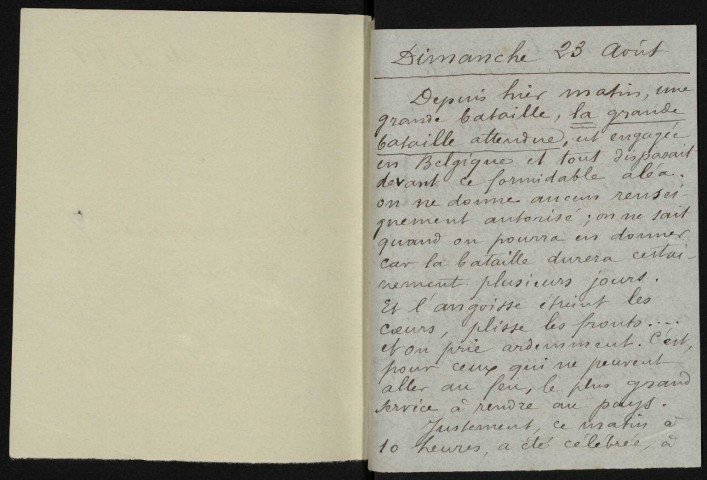 Dimanche 23 Août
Depuis hier matin, une
grande bataille, la grande
bataille attendue, est engagée
en Belgique et tout disparait
devant ce formidable aléa.
on ne donne aucun rensei-
gnement autorisé ; on ne sait
quand on pourra en donner
car la bataille durera certai-
nement plusieurs jours.
Et l'angoisse étreint les
cœurs, plisse les fronts....
et on prie ardemment. C'est,
pour ceux qui ne peuvent
aller au feu, le plus grand
service à rendre au pays.
Justement, ce matin à
10 heures, a été célébrée, à